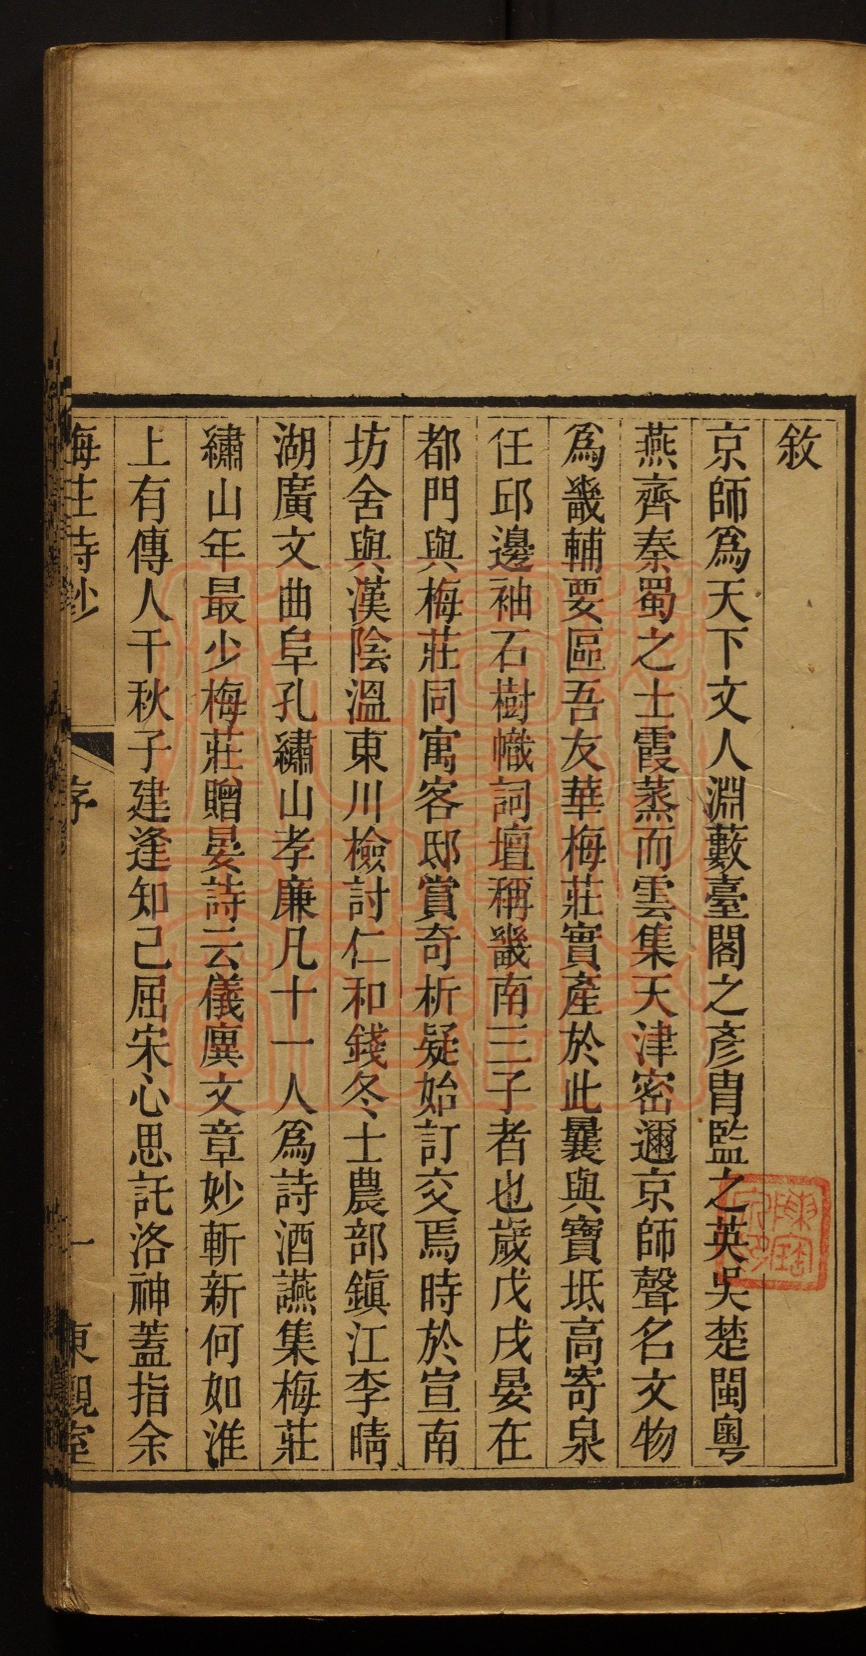 敘
京師爲天下文人淵藪臺閣之彥胄監之英吳楚閩粵
燕齊秦蜀之士霞蒸而雲集天津密邇京師聲名文物
爲畿輔要區吾友華梅莊實產於此曩與寶坻高寄泉
任邱邊袖石樹幟詞壇稱畿南三子者也歲戊戌晏在
都門與梅莊同寓客邸賞奇析疑始訂交焉時於宣南
坊舍與漢陰溫東川檢討仁和錢冬士農部鎭江李晴
湖廣文曲阜孔繡山孝廉凡十一人爲詩酒讌集梅莊
繡山年最少梅莊贈晏詩云儀廙文章妙斬新何如淮
上有傳人千秋子建逢知己屈宋心思託洛神蓋指余
梅莊詩鈔
序
一
東觀室